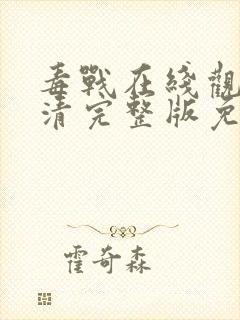 毒戰在綫觀
清完整版免
霍奇森